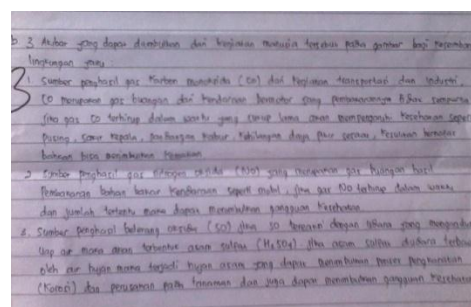 b 3 Akibat yang dapat ditimbulkan dari kegiatan manusia tersebut pada gambar bagi
lingkungan yang:
3
1. Sumber penghasil gas karbon monoksida (CO) dari kegiatan transportasi dan Industri,
CO merupakan gas buangan dari kendaraan bermotor yang pembakarannya
jika gas CO terhirup dalam waktu yang cukup lama akan mempengaruhi kesehatan seperti
pusing, sakit kepala, kehilangan daya pikir kesulitan bernafas
bahkan bisa menimbulkan kematian
2. Sumber penghasil gas nitrogen oksida (NO) yang merupakan gas buangan hasil
Pembakaran bahan bakar kendaraan seperti mobil, jika gas NO terhirup dalam waktu
dan jumlah tertentu maka dapat menimbulkan gangguan kesehatan
3. Sumber penghasil belerang oksida (SO) jika SO bereaksi dengan udara yang
uap air maka akan terbentuk asam sulfat (H2SO4) jika asam sulfat diudara terbawa
oleh air hujan maka terjadi hujan asam yang dapat menimbulkan proses pengkaratan
(Korosi) dan perusakan pada tanaman dan juga dapat menimbulkan gangguan kesehatan